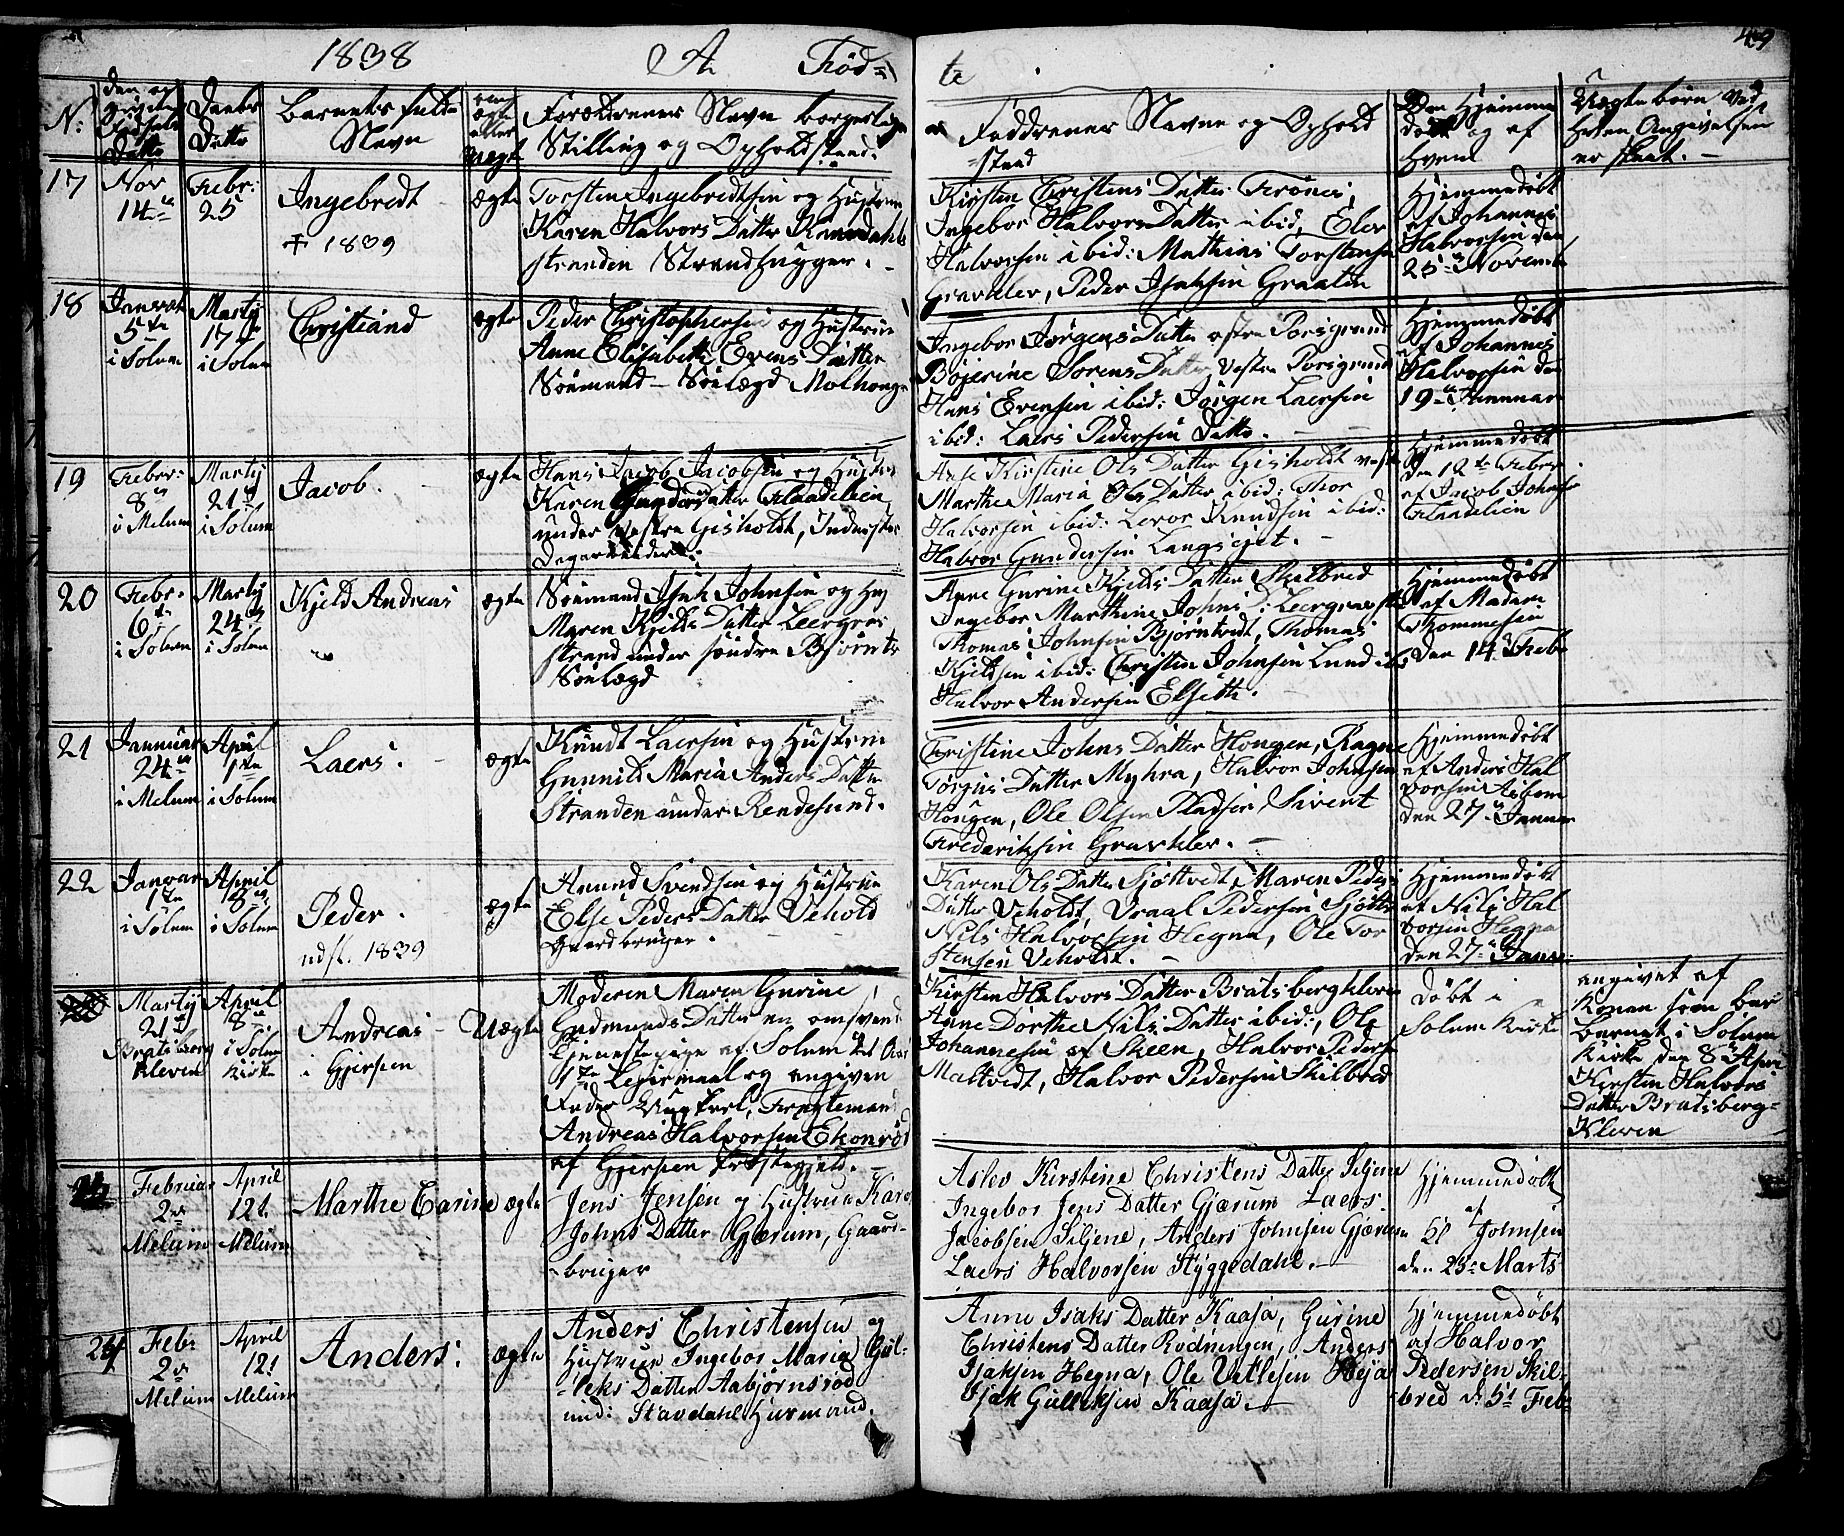 1838 A. Fød-
te
49
N:
den og
Fødsels
Datto
Daabs
Datto
Barnets fulde
Navn
ægte
eller
uægte
Forældrenes Navn borgerlige
Stilling og Opholdstæd.
Faddrenes Navne og Ophold
stæd
Hjemme
døbt og af
hvem
Uægte børn ved
hvem Angivelsen
er skeet. -
17
Nov
14de
Febr:
25
Ingebredt
✝ 1839
ægte
Torsten Ingebredtsen og Hustrue
Karen Halvors Datter
Stranden Strandhugger. -
Kirsten Christens Datter Frönes,
Ingebor Halvors Datter ibid, Elev
Halvorsen ibid: Mathias Torstensen
Gravklev, Peder Isaksen Graaten
Hjemmedøbt
af Johannes
Halvorsen den
25de Novembr
18
Januar
5te
i Solum
Martj
17de
i Solum
Christiand
ægte
Peder Christophersen og Hustrue
Anne Elisabeth Evens Datter
Sömand - Sölægd Molhougen
Ingebor Jørgens Datter østre Porsgrund
Bojerine Sörens Datter, Vestre Porsgrund
Hans Evensen ibid: Jörgen Laersen
ibid: Laers Pedersen Ditto. -
Hjemmedøbt
af Johannes
Halvorsen den
19de Januar
19
Febr:
8de
i Melum
Martj
21de
i Solum
Jacob.
ægte
Hans Jacob Jacobsen og Hustrue
Karen Gunders Datter Flaadelien
under vestre Gisholdt, Inderster
Dagarbeider.
Anne Kirstine Ols Datter Gisholdt vestre
Marthe Maria Ols Datter ibid: Thor
Halvorsen ibid: Levor Knudsen ibid:
Halvor Gundersen Langsjet. -
Hjemmedøbt
den 12te Febr.
af Jacob Johnsen
Flaadelien
20
Febr.
6te
i Solum
Martj
24de
i Solum
Kjeld Andreas
ægte
Sömand Isak Johnsen og Hu
Maren Kjelds Datter Leergras
strand under söndre Bjørntv
Sölægd
Anne Gurine Kjelds Datter Skilbred
Ingebor Marthine Johns D: Leergrasstr
Thomas Johnsen Bjørntvedt, Thomas
Kjeldsen ibid: Christen Johnsen Lund ibi
Halvor Andersen Elseth. -
Hjemmedøbt
af Madam
Thommesen
den 14de Febr
21
Januar
24de
i Melum
April
1te
i Solum
Laers. -
ægte
Knudt Laersen og Hustrue
Gunnild Maria Anders Datter
Stranden under Rendesund.
Christine Johns Datter Hougen, Ragne
Torjus Datter Myhra, Halvor Johnsen
Hougen, Ole Olsen Pladsen, Sivert
Frederiksen Gravklev. -
Hjemmedøbt
af Anders Hal
vorsen Aasbom
den 27de Januar
22
Januar
1te
i Solum
April
8de
i Solum
Peder.
uds. 1839
ægte
Amund Svendsen og Hustrue
Else Peders Datter Veholdt
Gaardbruger.
Karen Ols Datter Sjøttvedt, Maren Peders
Datter Veholdt, Vraal Pedersen Sjøtt
Nils Halvorsen Hegna, Ole Tor
stensen Veholdt. -
Hjemmedøbt
af Nils Hal
vorsen Hegna
den 27de Janu:
Martj
21de
Bratsberg
kleven
April
8de
i Solum
Kirke
Andreas
i Gjerpen
Uægte
Moderen Maren Gurine
Gudmunds Datter en omsvend
Tjenestepige af Solum det
1te Leiermaal og angiven
Fader Ungkarl,
Andreas Halvorsen Ekonrød
af Gjerpen Præstegjeld. -
Kirsten Halvors Datter Bratsbergkleven
Anne Dorthe Nils Datter ibid:, Ole
Johannesen af Skeen, Halvor Pedersen
Maltvedt, Halvor Pedersen Skilbred
Døbt i
Solum Kirke
angivet af
Konen som bar
barnet i Solum
Kirke den 8de April
Kirsten Halvors
Datter Bratsberg-
Kleven
Februar
2de
Melum
April
12t.
Melum
Marthe Carine
ægte
Jens Jensen og Hustrue Karen
Johns Datter Gjærum, Gaard-
bruger
Aslev Kirstine Christens Datter Siljene
Ingebor Jens Datter Gjærum Laers
Jacobsen Siljene, Anders Johnsen Gjærum
Laers Halvorsen Styggedahl. -
Hjemmedøbt
af
Johnsen
den 23de Marts
24
Feb:
2de
Melum
April
12t
Melum
Anders.
ægte
Anders Christensen og
Hustrue Ingebor Maria Gul-
leks Datter Aabjörnsröd
und: Stavdahl Huusmand.
Anne Isaks Datter Kaasa, Gurine
Christens Datter Rödningen, Anders
Isaksen Hegna, Ole Vetlesen Heja
Isak Gulleksen Kaasa. -
Hjemmedøbt
af Halvor
Pedersen Skil-
bred d. 5t Feb: